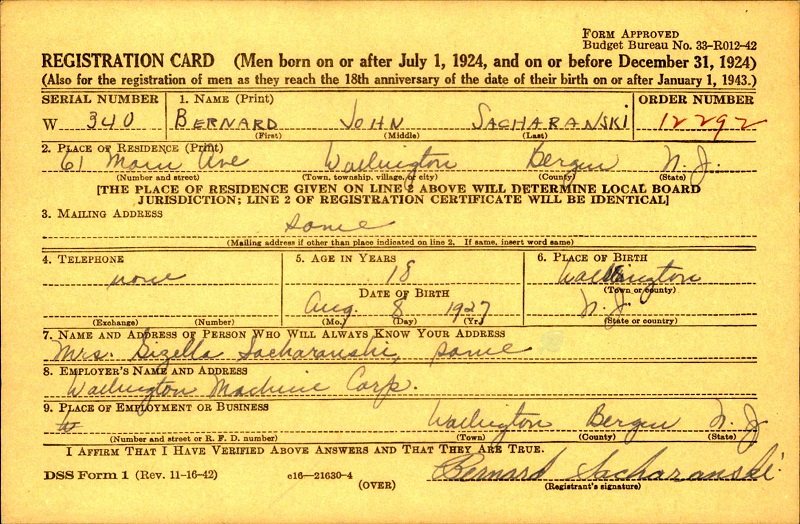 FORM APPROVED
Budget Bureau No. 33-R012-42
REGISTRATION CARD (Men born on or after July 1, 1924, and on or before December 31, 1924)
(Also for the registration of men as they reach the 18th anniversary of the date of their birth on or after January 1, 1943.)
SERIAL NUMBER 1. NAME (Print) ORDER NUMBER
W 340 BERNARD JOHN SACHARANSKI 12292
(First) (Middle) (Last)
2. PLACE OF RESIDENCE (Print)
61 Main Ave Wallington Bergen N.J.
(Number and street) (Town, township, village, or city) (County) (State)
[THE PLACE OF RESIDENCE GIVEN ON LINE 2 ABOVE WILL DETERMINE LOCAL BOARD
JURISDICTION; LINE 2 OF REGISTRATION CERTIFICATE WILL BE IDENTICAL]
3. MAILING ADDRESS
same
(Mailing address if other than place indicated on line 2. If same, insert word same)
4. TELEPHONE 5. AGE IN YEARS 6. PLACE OF BIRTH
none 18 Wallington
DATE OF BIRTH (Town or county)
Aug. 8 1927 N.J.
(Exchange) (Number) (Mo.) (Day) (Yr.) (State or country)
7. NAME AND ADDRESS OF PERSON WHO WILL ALWAYS KNOW YOUR ADDRESS
Mrs. Gizella Sacharanski, same
8. EMPLOYER'S NAME AND ADDRESS
Wallington Machine Corp.
9. PLACE OF EMPLOYMENT OR BUSINESS
Wallington Bergen N.J
(Number and street or R. F. D. number) (Town) (County) (State)
I AFFIRM THAT I HAVE VERIFIED ABOVE ANSWERS AND THAT THEY ARE TRUE.
DSS Form 1 (Rev. 11-16-42) c16—21630-4 (OVER) Bernard Sacharanski
(Registrant's signature)